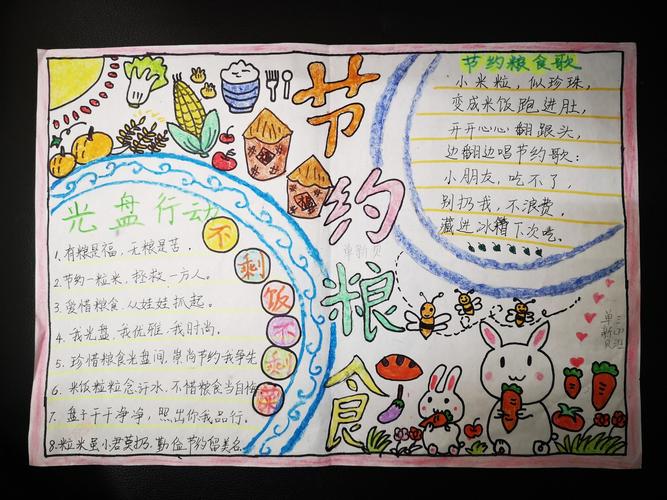 节约粮食
光盘行动
不剩饭不剩菜
1.有粮是福，无粮是苦。
2.节约一粒米，拯救一方人。
3.爱惜粮食.从娃娃抓起。
4.我光盘.我优雅.我时尚。
5.珍惜粮食光盘间.崇尚节约我争先
6.米饭粒粒念汗水.不惜粮食当自悔
7.盘干干净净，照出你我品行。
8.粒米虽小君莫扔.勤俭节约留美名
节约粮食歌
小米粒，似珍珠，
变成米饭跑进肚，
开开心心翻跟头，
边翻边唱节约歌：
小朋友，吃不了，
别扔我，不浪费，
藏进冰箱下次吃。
单新贝
单新贝